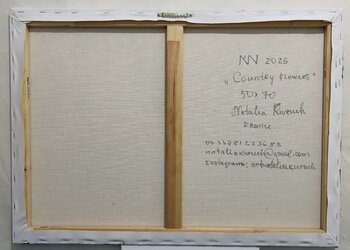 NN 2026
„Country flowers"
50x70
Natalia Kuruch
France.
00 33781233683
nataliakuruch@gmail.com
Instagram: